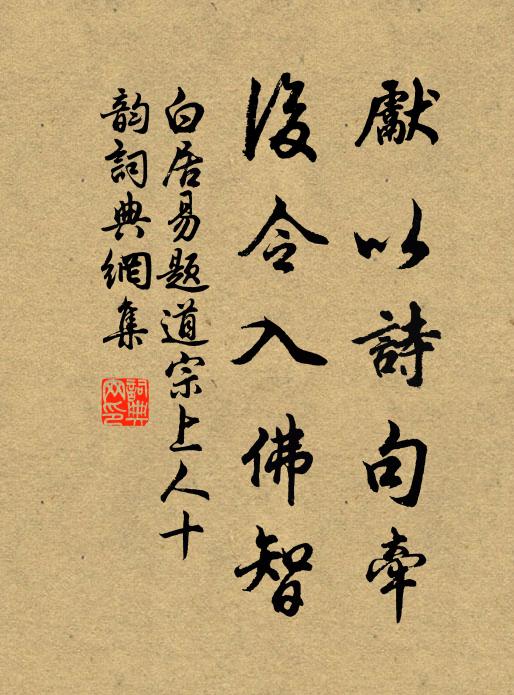 獻以詩句牽
後令入佛智
白居易題道宗上人十
韻詞典網集
詞典
网印